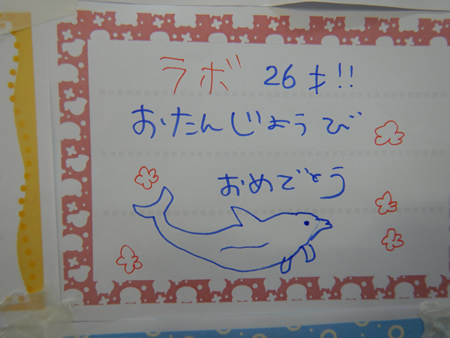 ラボ 26才!!
おたんじょうび
おめでとう